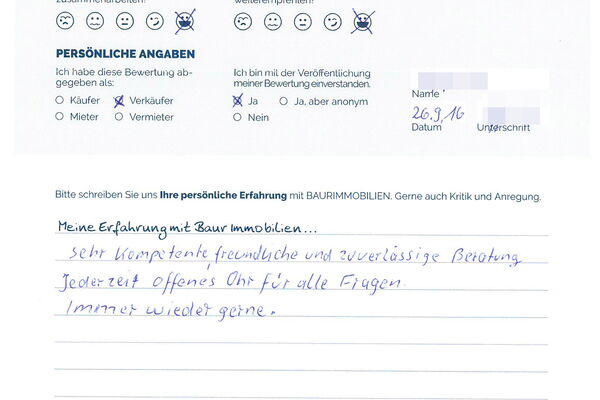 zusammenarbeiten?
weiterempfehlen?
PERSÖNLICHE ANGABEN
Ich habe diese Bewertung ab-
gegeben als:
Käufer Verkäufer
Mieter Vermieter
Ich bin mit der Veröffentlichung
meiner Bewertung einverstanden.
Ja Ja, aber anonym
Nein
Name
26.9.16
Datum Unterschrift
Bitte schreiben Sie uns Ihre persönliche Erfahrung mit BAURIMMOBILIEN. Gerne auch Kritik und Anregung.
Meine Erfahrung mit Baur Immobilien...
Sehr kompetente, freundliche und zuverlässige Beratung
Jederzeit offenes Ohr für alle Fragen.
Immer wieder gerne.